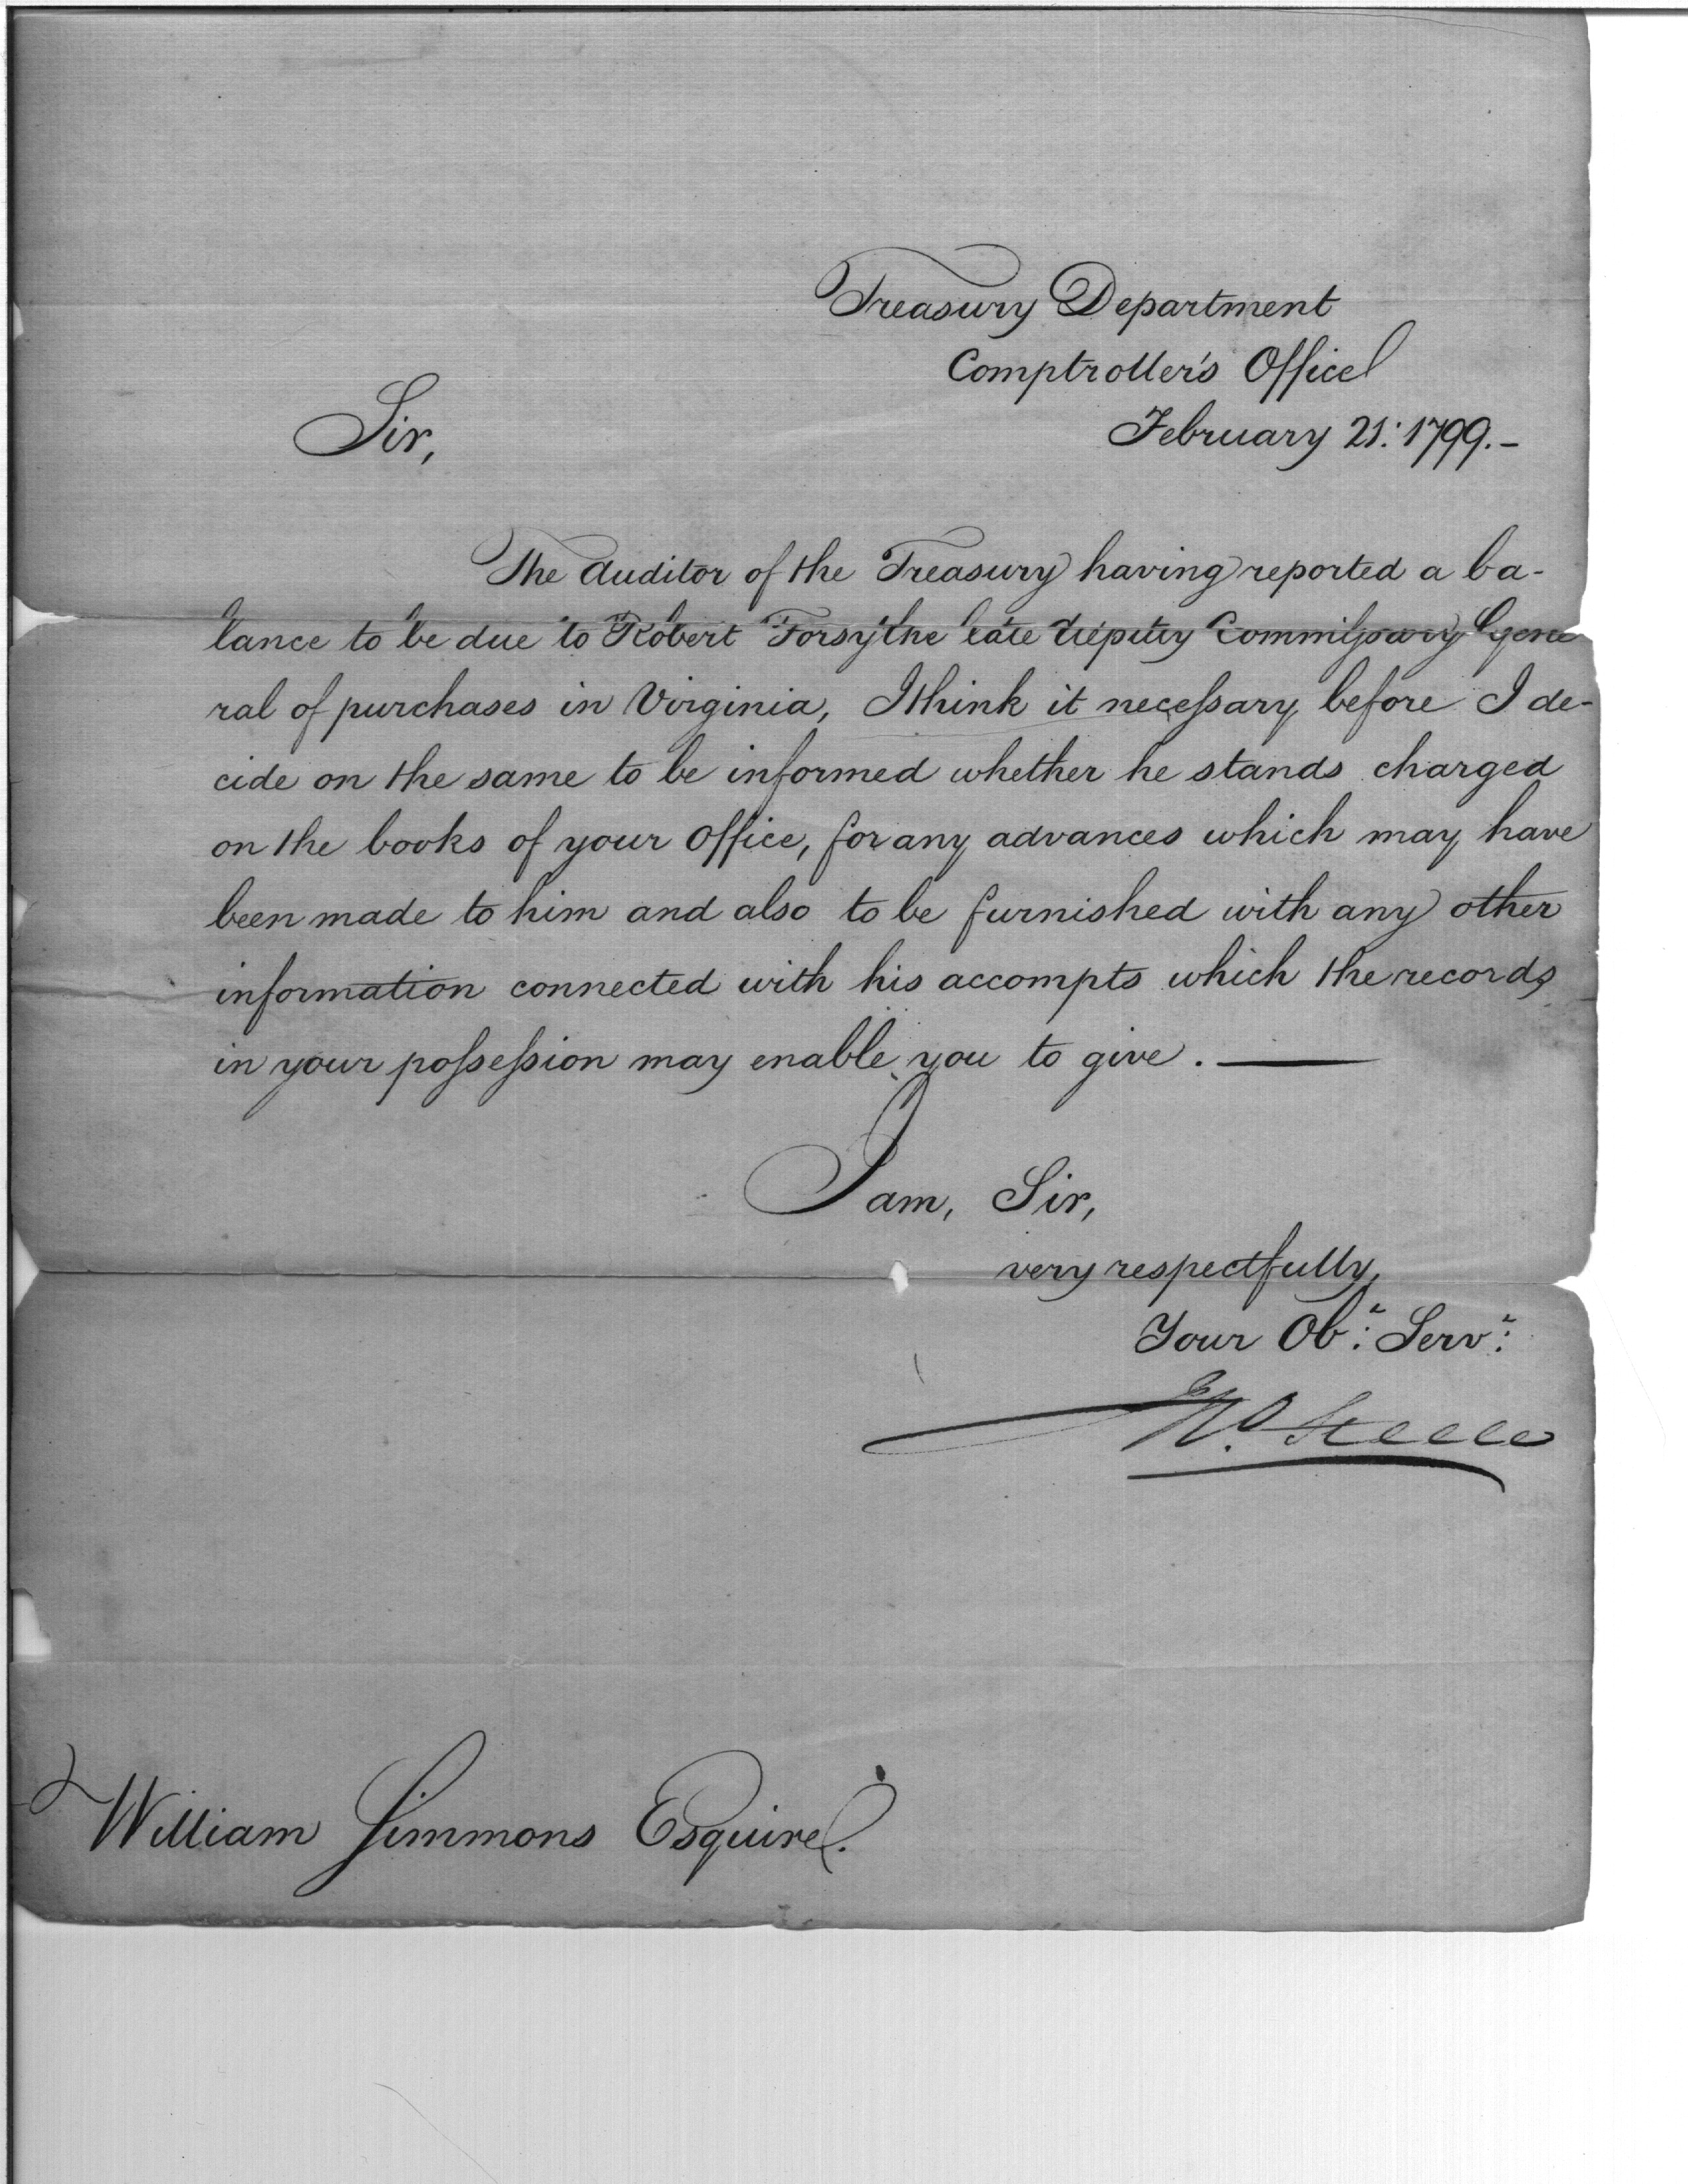 Treasury Department
Comptroller's Office
February 21: 1799.-
Sir,
The Auditor of the Treasury having reported a ba-
lance to be due to Robert Forsythe late deputy Commissary Gene
ral of purchases in Virginia, I think it necessary before I de-
cide on the same to be informed whether he stands charged
on the books of your Office, for any advances which may have
been made to him and also to be furnished with any other
information connected with his accompts which the records
in your possession may enable you to give. —
I am, Sir,
very respectfully,
Your Obt: Servt:
Jno. Steele
William Simmons Esquire.